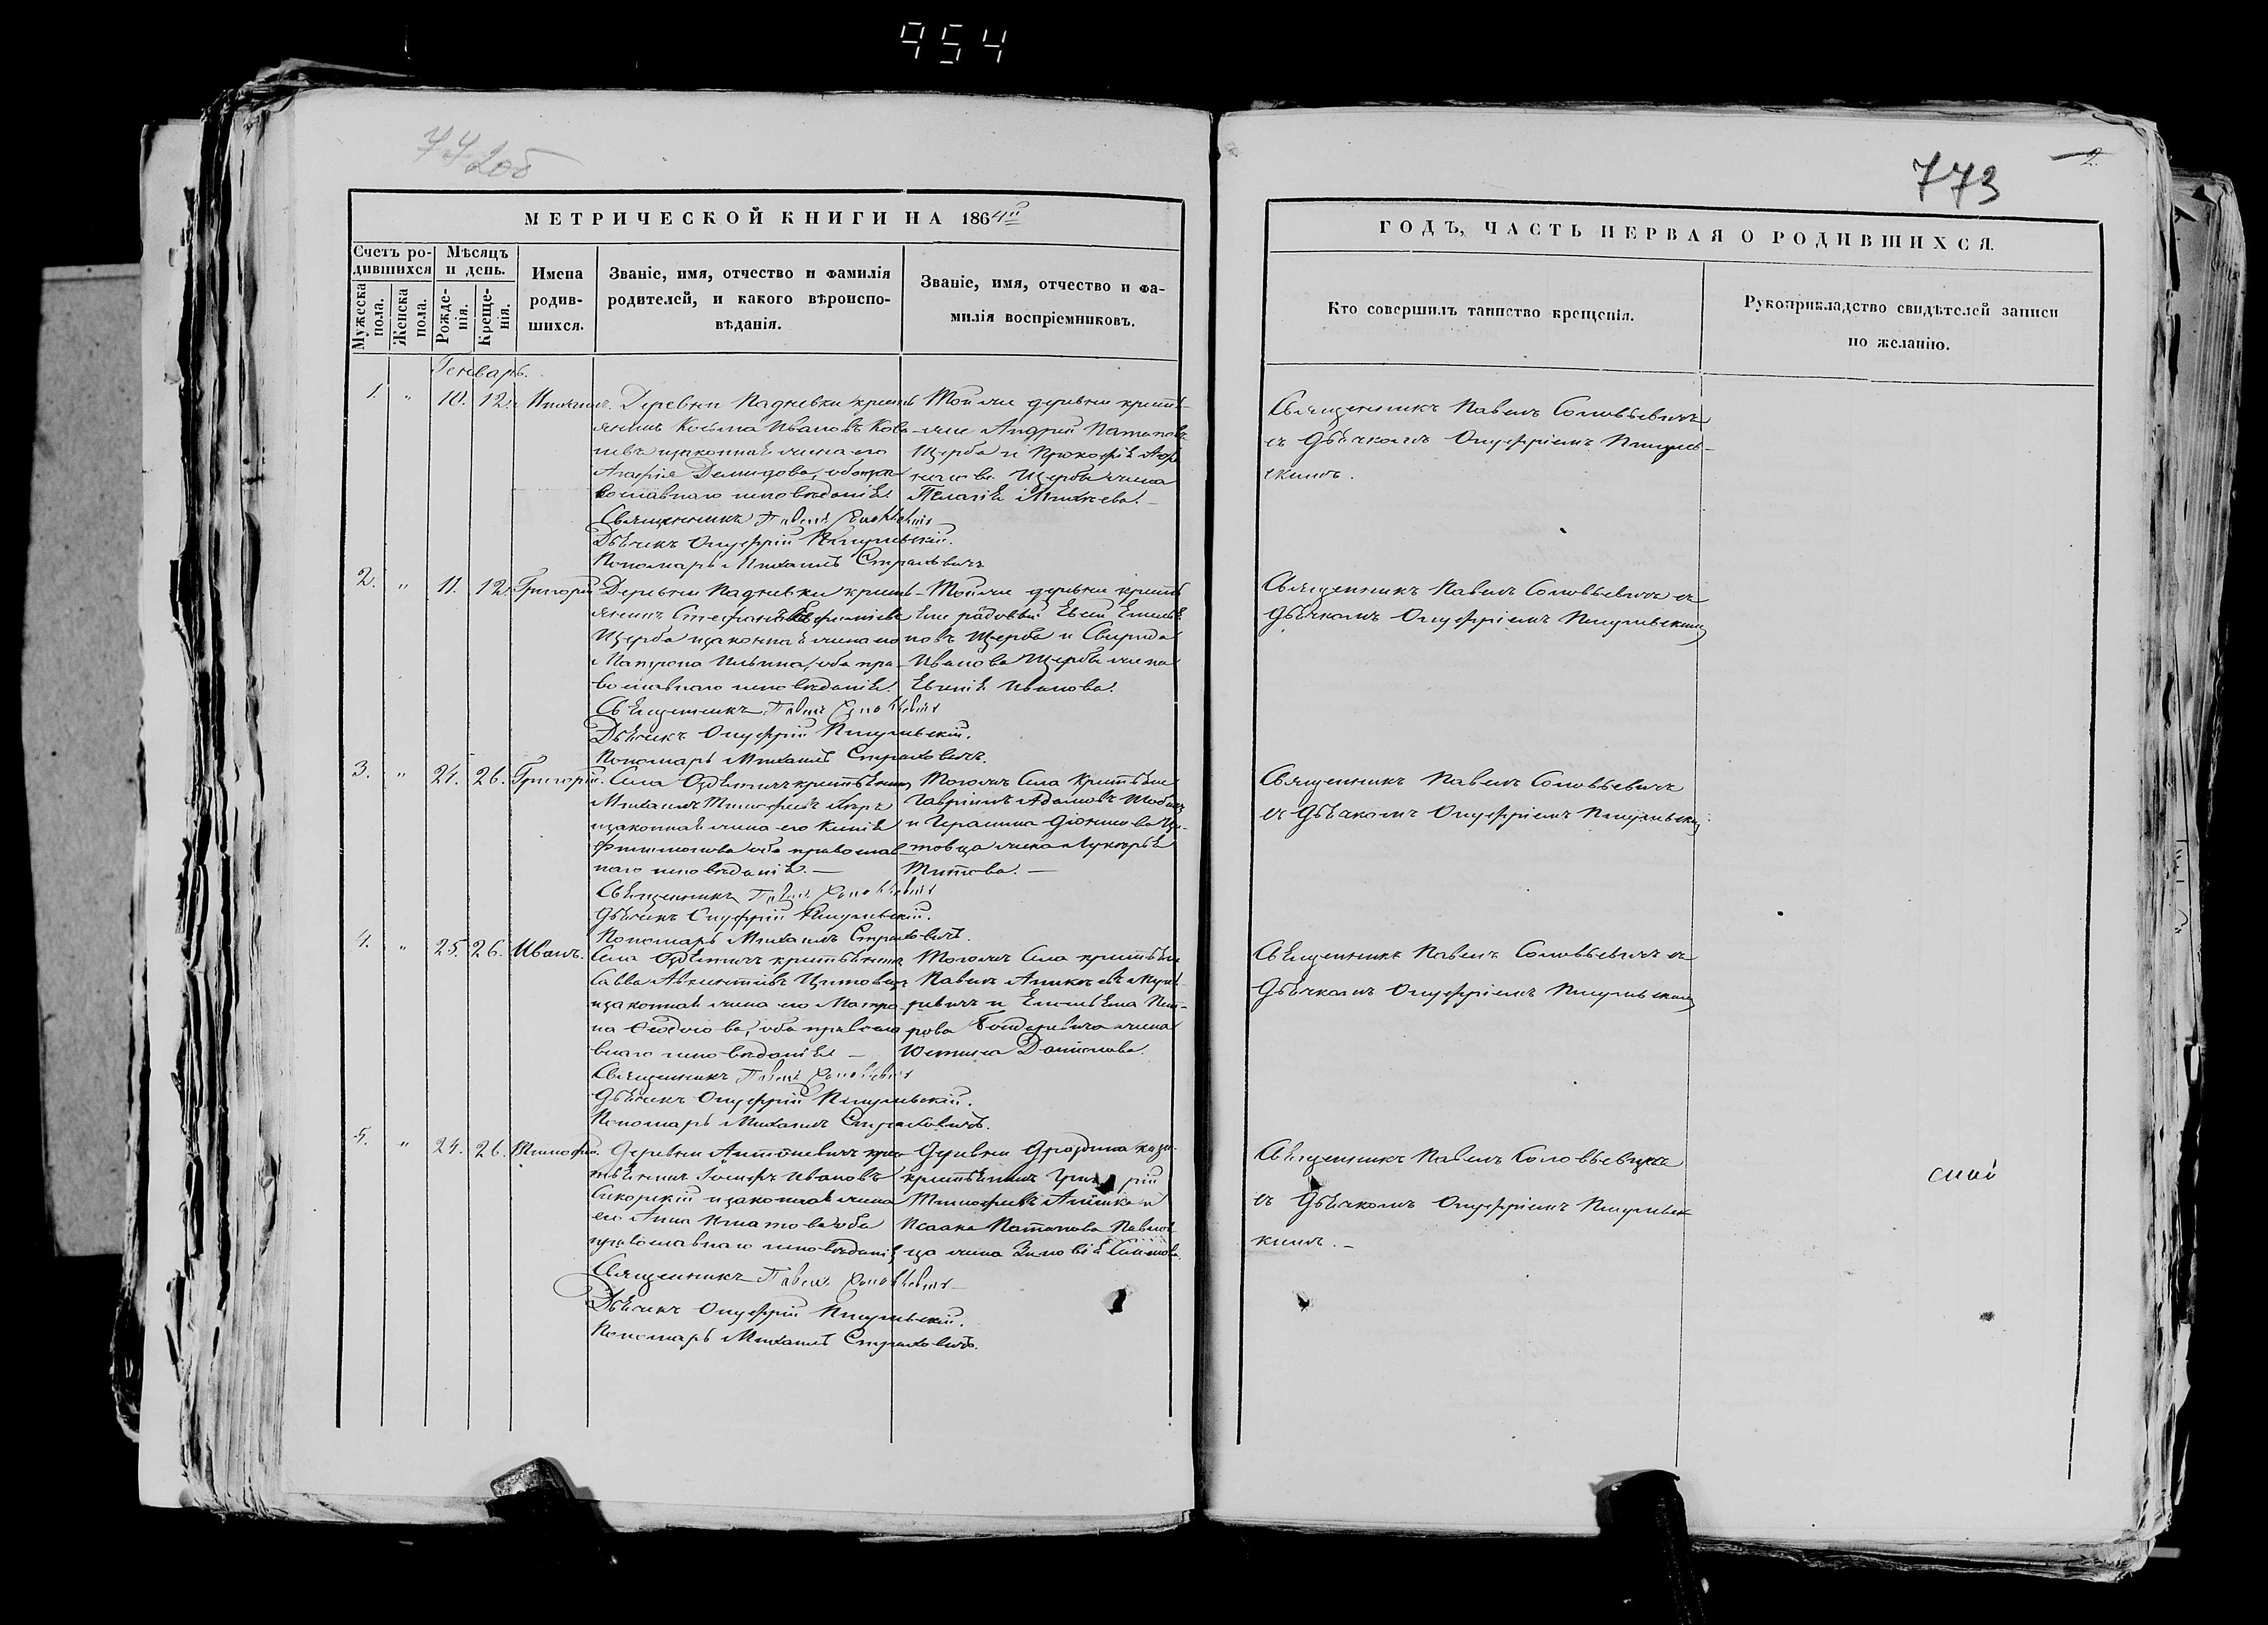 954
772об
773
2.
МЕТРИЧЕСКОЙ КНИГИ НА 1864й
Счетъ ро-
дившихся
Мѣсяцъ
и день.
Мужеска
пола.
Женска
пола.
Рожде-
нія.
Креще-
нія.
Имена
родив-
шихся.
Званіе, имя, отчество и фамилія
родителей, и какого вѣроиспо-
вѣданія.
Званіе, имя, отчество и фа-
милія воспріемниковъ.
ГОДЪ, ЧАСТЬ ПЕРВАЯ О РОДИВШИХСЯ.
Кто совершилъ таинство крещенія.
Рукоприкладство свидѣтелей записи
по желанію.
Генварь.
1. " 10. 12. Михаилъ.
Деревни Падневки крестъ
янинъ Косьма Ивановъ Кова
левъ изаконная жена его
Агафія Демидова, оба пра
вославнаго исповѣданія
Священникъ Павелъ Соловьевичъ
Дьячекъ Онуфрій Пигулевскій.
Пономарь Михаилъ Страховичъ
Той же деревни крестья-
не Андрей Патаповъ
Щерба и Прокофія
Щербы жена
Пелагія Михеева. –
Священникъ Павелъ Соловьевичъ
съ Дьячкомъ Онуфріемъ Пигулев-
скимъ.
2. " 11. 12. Григорій
Деревни Падневки крестъ
янинъ Стефанъ
Щерба изаконная жена его
Матрона Ильина, оба пра-
вославнаго исповѣданія.
Священникъ Павелъ Соловьевичъ
Дьячекъ Онуфрій Пигулевскій.
Пономарь Михаилъ Страховичъ.
Той же деревни крестъ
рядовый Евсей
новъ Щерба и Свирида
Иванова Щербы жена
Евгенія Иванова.
Священникъ Павелъ Соловьевичъ съ
Дьячкомъ Онуфріемъ Пигулевскимъ
3. " 24. 26. Григорій.
Села Одѣтичъ крестьянинъ
Михаилъ Тимофеевъ
изаконная жена его Ксенія
Филимонова оба православ
наго исповѣданія. –
Священникъ Павелъ Соловьевичъ
Дьячекъ Онуфрій Пигулевскій.
Пономарь Михаилъ Страховичъ.
Тогожъ Села Крестьяне
Гавріилъ Адамовъ
и Герасима Діонисова Ци-
товца жена Лукерья
Титова. –
Священникъ Павелъ Соловьевичъ
съ Дьячкомъ Онуфріемъ Пигулевским
4. " 25. 26. Иванъ.
Села Одѣтичъ крестьянинъ
Савва Авксентіевъ Цитовецъ
изаконная жена его Матро
на Ѳедосова, оба правосла
внаго исповѣданія –
Священникъ Павелъ Соловьевичъ
Дьячекъ Онуфрій Пигулевскій.
Пономарь Михаилъ Страховичъ.
Тогожъ Села крестьяне
Павелъ
и Емельяна Пет-
рова Бондаревича жена
Юстина Даніилова.
Священникъ Павелъ Соловьевичъ съ
Дьячкомъ Онуфріемъ Пигулевскимъ
5. " 24. 26. Тимофей.
Деревни Антоневичъ крес
тьянинъ Іосифъ Ивановъ
Сикорскій изаконная жена
его Анна Игнатова оба
православнаго исповѣданія
Священникъ Павелъ Соловьевичъ
Дьячекъ Онуфрій Пигулевскій.
Пономарь Михаилъ Страховичъ.
Деревни
крестьянинъ Григорій
Тимофеевъ и
Исаака Потапова Павлов
ца жена Зиновія Симонова.
Священникъ Павелъ Соловьевичъ
съ Дьячкомъ Онуфріемъ Пигулевс
кимъ. –